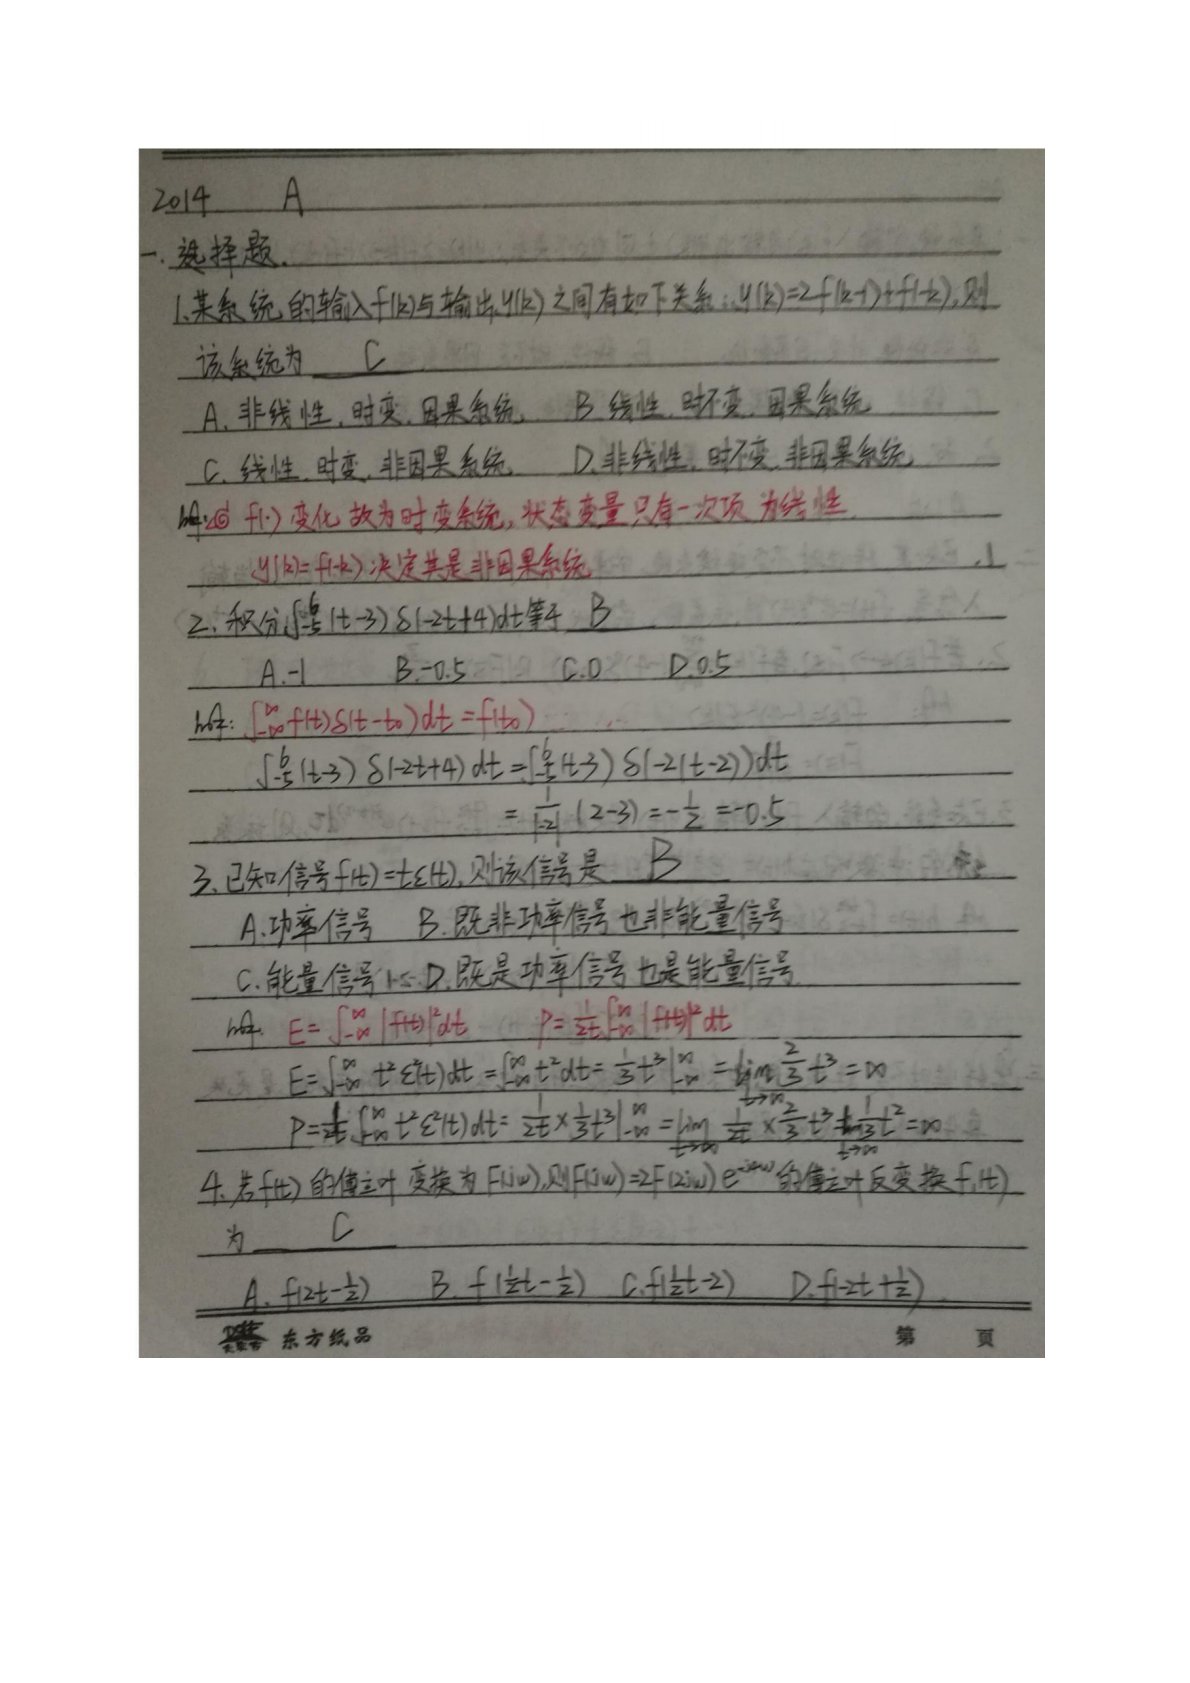 2014 A
一.选择题.
1.某系统的输入f(k)与输出y(k)之间有如下关系:y(k)=2f(k-1)+f(-k),则
该系统为 C
A.非线性,时变,因果系统 B 线性,时不变,因果系统
C.线性,时变,非因果系统 D.非线性,时不变,非因果系统
f(·)变化故为时变系统,状态变量只有一次项为线性
y(k)=f(-k)决定其是非因果系统
2.积分∫_{-5}^{6}(t-3)δ(-2t+4)dt等于 B
A.-1 B.-0.5 C.0 D.0.5
∫_{-∞}^{∞}f(t)δ(t-t₀)dt=f(t₀)
∫_{-5}^{6}(t-3)δ(-2t+4)dt=∫_{-5}^{6}(t-3)δ(-2(t-2))dt
=1/|-2|·(2-3)=-1/2=-0.5
3.已知信号f(t)=tε(t),则该信号是 B
A.功率信号 B.既非功率信号也非能量信号
C.能量信号 D.既是功率信号也是能量信号
E=∫_{-∞}^{∞}|f(t)|²dt P=1/2t∫_{-∞}^{∞}|f(t)|²dt
E=∫_{-∞}^{∞}t²ε²(t)dt=∫_{-∞}^{∞}t²dt=1/3t³|_{-∞}^{∞}=lim_{t→∞}2/3t³=∞
P=1/2t∫_{-∞}^{∞}t²ε²(t)dt=1/2t×1/3t³|_{-∞}^{∞}=lim_{t→∞}1/2t×2/3t³=lim_{t→∞}1/3t²=∞
4.若f(t)的傅立叶变换为F(jw),则F(jw)=2F(2jw)e^{-j4w}的傅立叶反变换f₁(t)
为 C
A.f(2t-1/2) B.f(1/2t-1/2) C.f(1/2t-2) D.f(-2t+1/2)
东方纸品 第 页